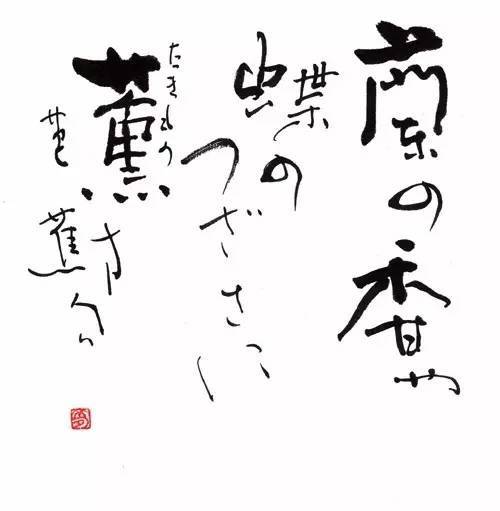 蘭の香や
蝶の
つばさに
たきもの
薫
芭蕉